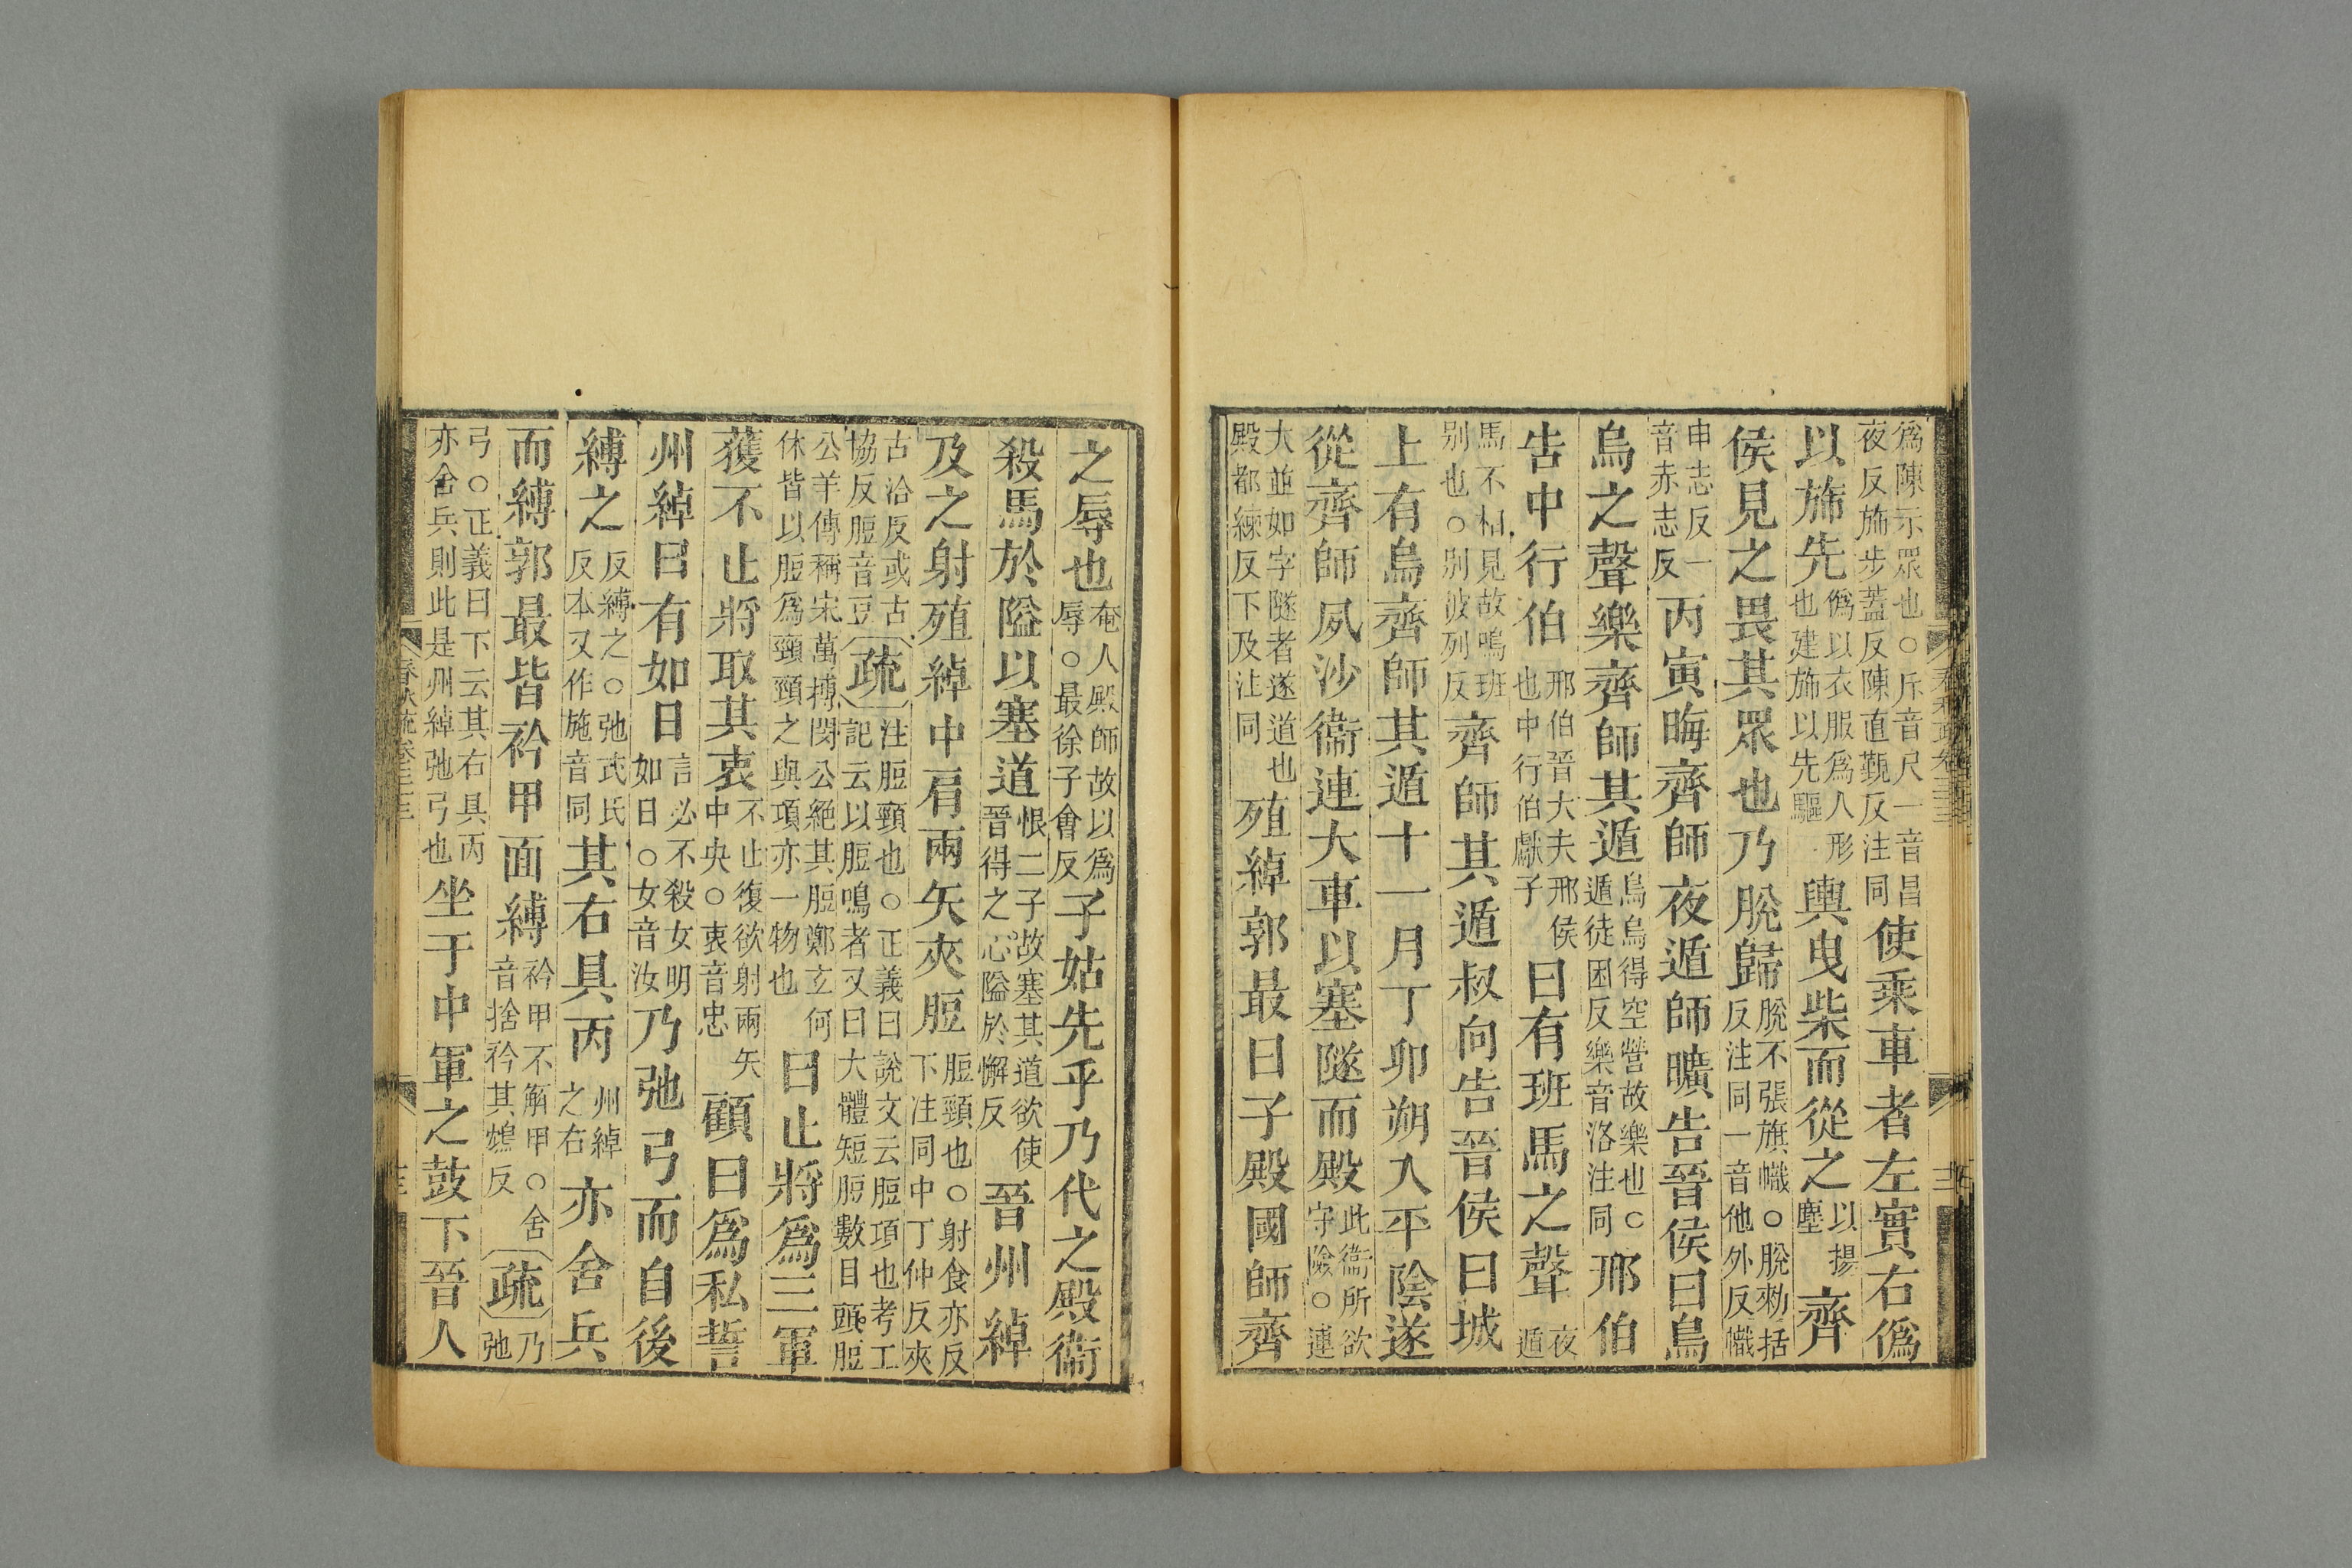 爲陳示眾也○斥音尺一音昌夜反斾步蓋反陳直覲反注同使乘車者左實右僞
以斾先僞以衣服爲人形也建斾以先驅輿曳柴而從之以揚塵齊
侯見之畏其眾也乃脫歸脫不張旗幟○脫勑括反注同一音他外反幟
申志反一音赤志反丙寅晦齊師夜遁師曠告晉侯曰烏
烏之聲樂齊師其遁烏烏得空營故樂也○遁徒困反樂音洛注同邢伯
告中行伯邢伯晉大夫邢侯也中行伯獻子曰有班馬之聲夜遁
馬不相見故鳴班别也○别彼列反齊師其遁叔向告晉侯曰城
上有烏齊師其遁十一月丁卯朔入平陰遂
從齊師夙沙衞連大車以塞隧而殿此衞所欲守險○連
大並如字隧者遂道也殿都練反下及注同殖綽郭最曰子殿國師齊
之辱也奄人殿師故以爲辱○最徐子會反子姑先乎乃代之殿衞
殺馬於隘以塞道恨二子故塞其道欲使晉得之○隘於懈反晉州綽
及之射殖綽中肩兩矢夾脰脰頸也○射食亦反下注同中丁仲反夾
古洽反或古協反脰音豆疏注脰頸也○正義曰說文云脰項也考工記云以脰鳴者又曰大體短脰數目頭脰
公羊傳稱宋萬搏閔公絕其脰鄭玄何休皆以脰爲頸頸之與項亦一物也曰止將爲三軍
獲不止將取其衷不止復欲射兩矢中央○衷音忠顧曰爲私誓
州綽曰有如日言必不殺女明如日○女音汝乃弛弓而自後
縛之反縛之○弛式氏反本又作施音同其右具丙州綽之右亦舍兵
而縛郭最皆衿甲面縛衿甲不解甲○舍音捨衿其鴆反疏乃弛
弓○正義曰下云其右具丙亦舍兵則此是州綽弛弓也坐于中軍之鼓下晉人
春秋疏卷三十三